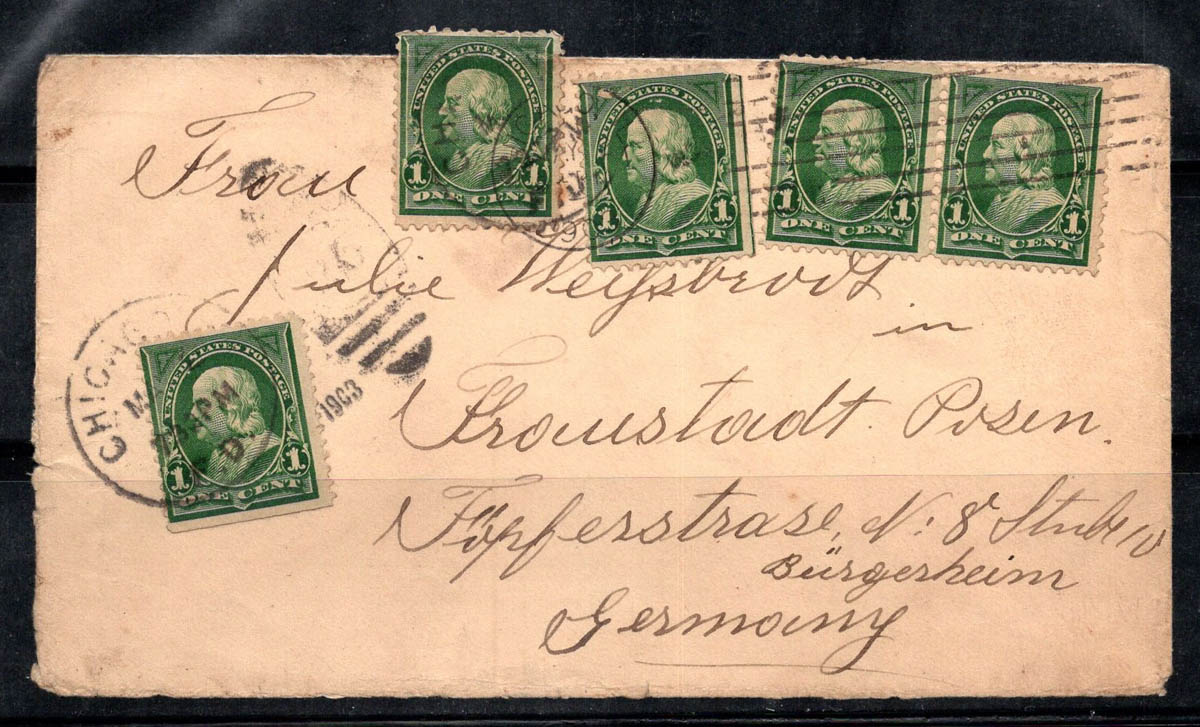 UNITED STATES POSTAGE
1 1
ONE CENT
UNITED STATES POSTAGE
1 1
ONE CENT
UNITED STATES POSTAGE
1 1
ONE CENT
UNITED STATES POSTAGE
1 1
ONE CENT
Frau
Julie Weysbrodt
in
Fraustadt Posen.
Töpferstrase, N: 8 Stube
Bürgerheim
Germany
CHICAGO
PM
D
1903
UNITED STATES POSTAGE
1 1
ONE CENT